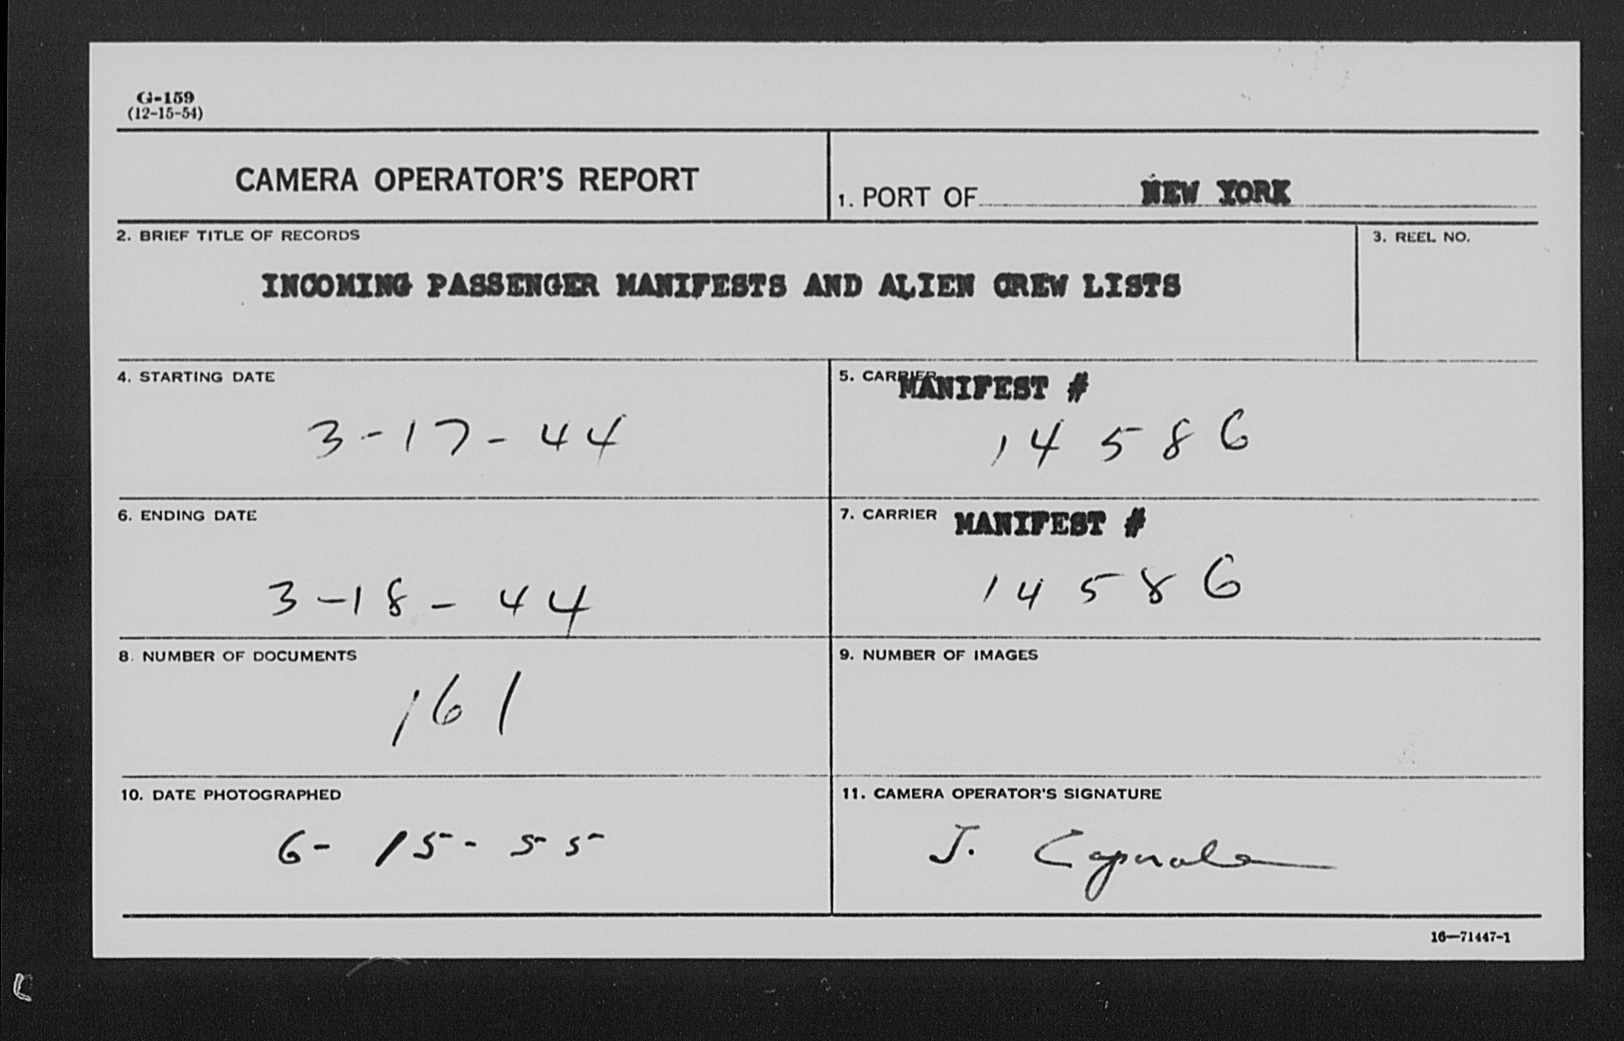 G-159
(12-15-54)
CAMERA OPERATOR'S REPORT
1. PORT OF NEW YORK
2. BRIEF TITLE OF RECORDS
3. REEL NO.
INCOMING PASSENGER MANIFESTS AND ALIEN CREW LISTS
4. STARTING DATE
5. CARRIER MANIFEST #
3-17-44
14586
6. ENDING DATE
7. CARRIER MANIFEST #
3-18-44
14586
8. NUMBER OF DOCUMENTS
9. NUMBER OF IMAGES
161
10. DATE PHOTOGRAPHED
11. CAMERA OPERATOR'S SIGNATURE
6-15-55
J.
16—71447-1